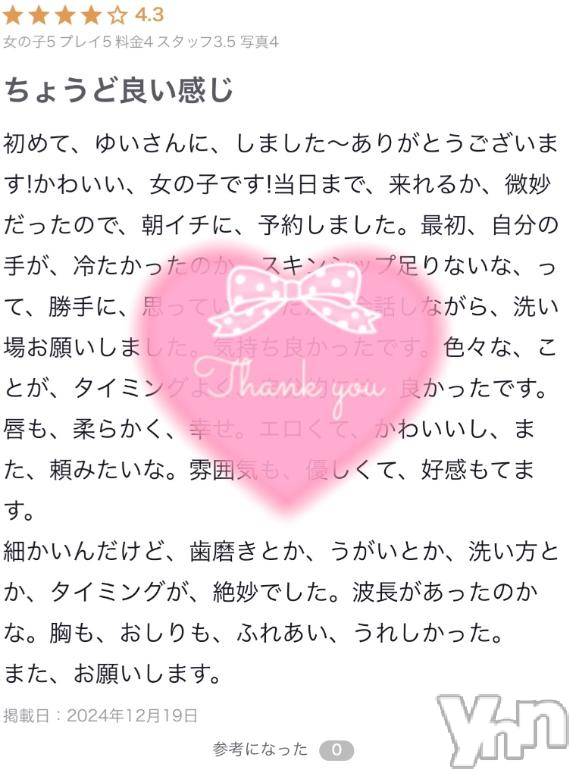 ★★★★☆ 4.3
女の子5 プレイ5 料金4 スタッフ3.5 写真4
ちょうど良い感じ
初めて、ゆいさんに、しました〜ありがとうございま
す!かわいい、女の子です!当日まで、来れるか、微妙
だったので、朝イチに、予約しました。最初、自分の
手が、冷たかったのか、スキンシップ足りないな、っ
て、勝手に、思ってい 会話しながら、洗い
場お願いしました。気持ち良かったです。色々な、こ
とが、タイミングよく 良かったです。
唇も、柔らかく、幸せ。エロくて、かわいいし、ま
た、頼みたいな。雰囲気も、優しくて、好感もてま
す。
Thank you
細かいんだけど、歯磨きとか、うがいとか、洗い方と
か、タイミングが、絶妙でした。波長があったのか
な。胸も、おしりも、ふれあい、うれしかった。
また、お願いします。
掲載日：2024年12月19日
参考になった 0
ynn